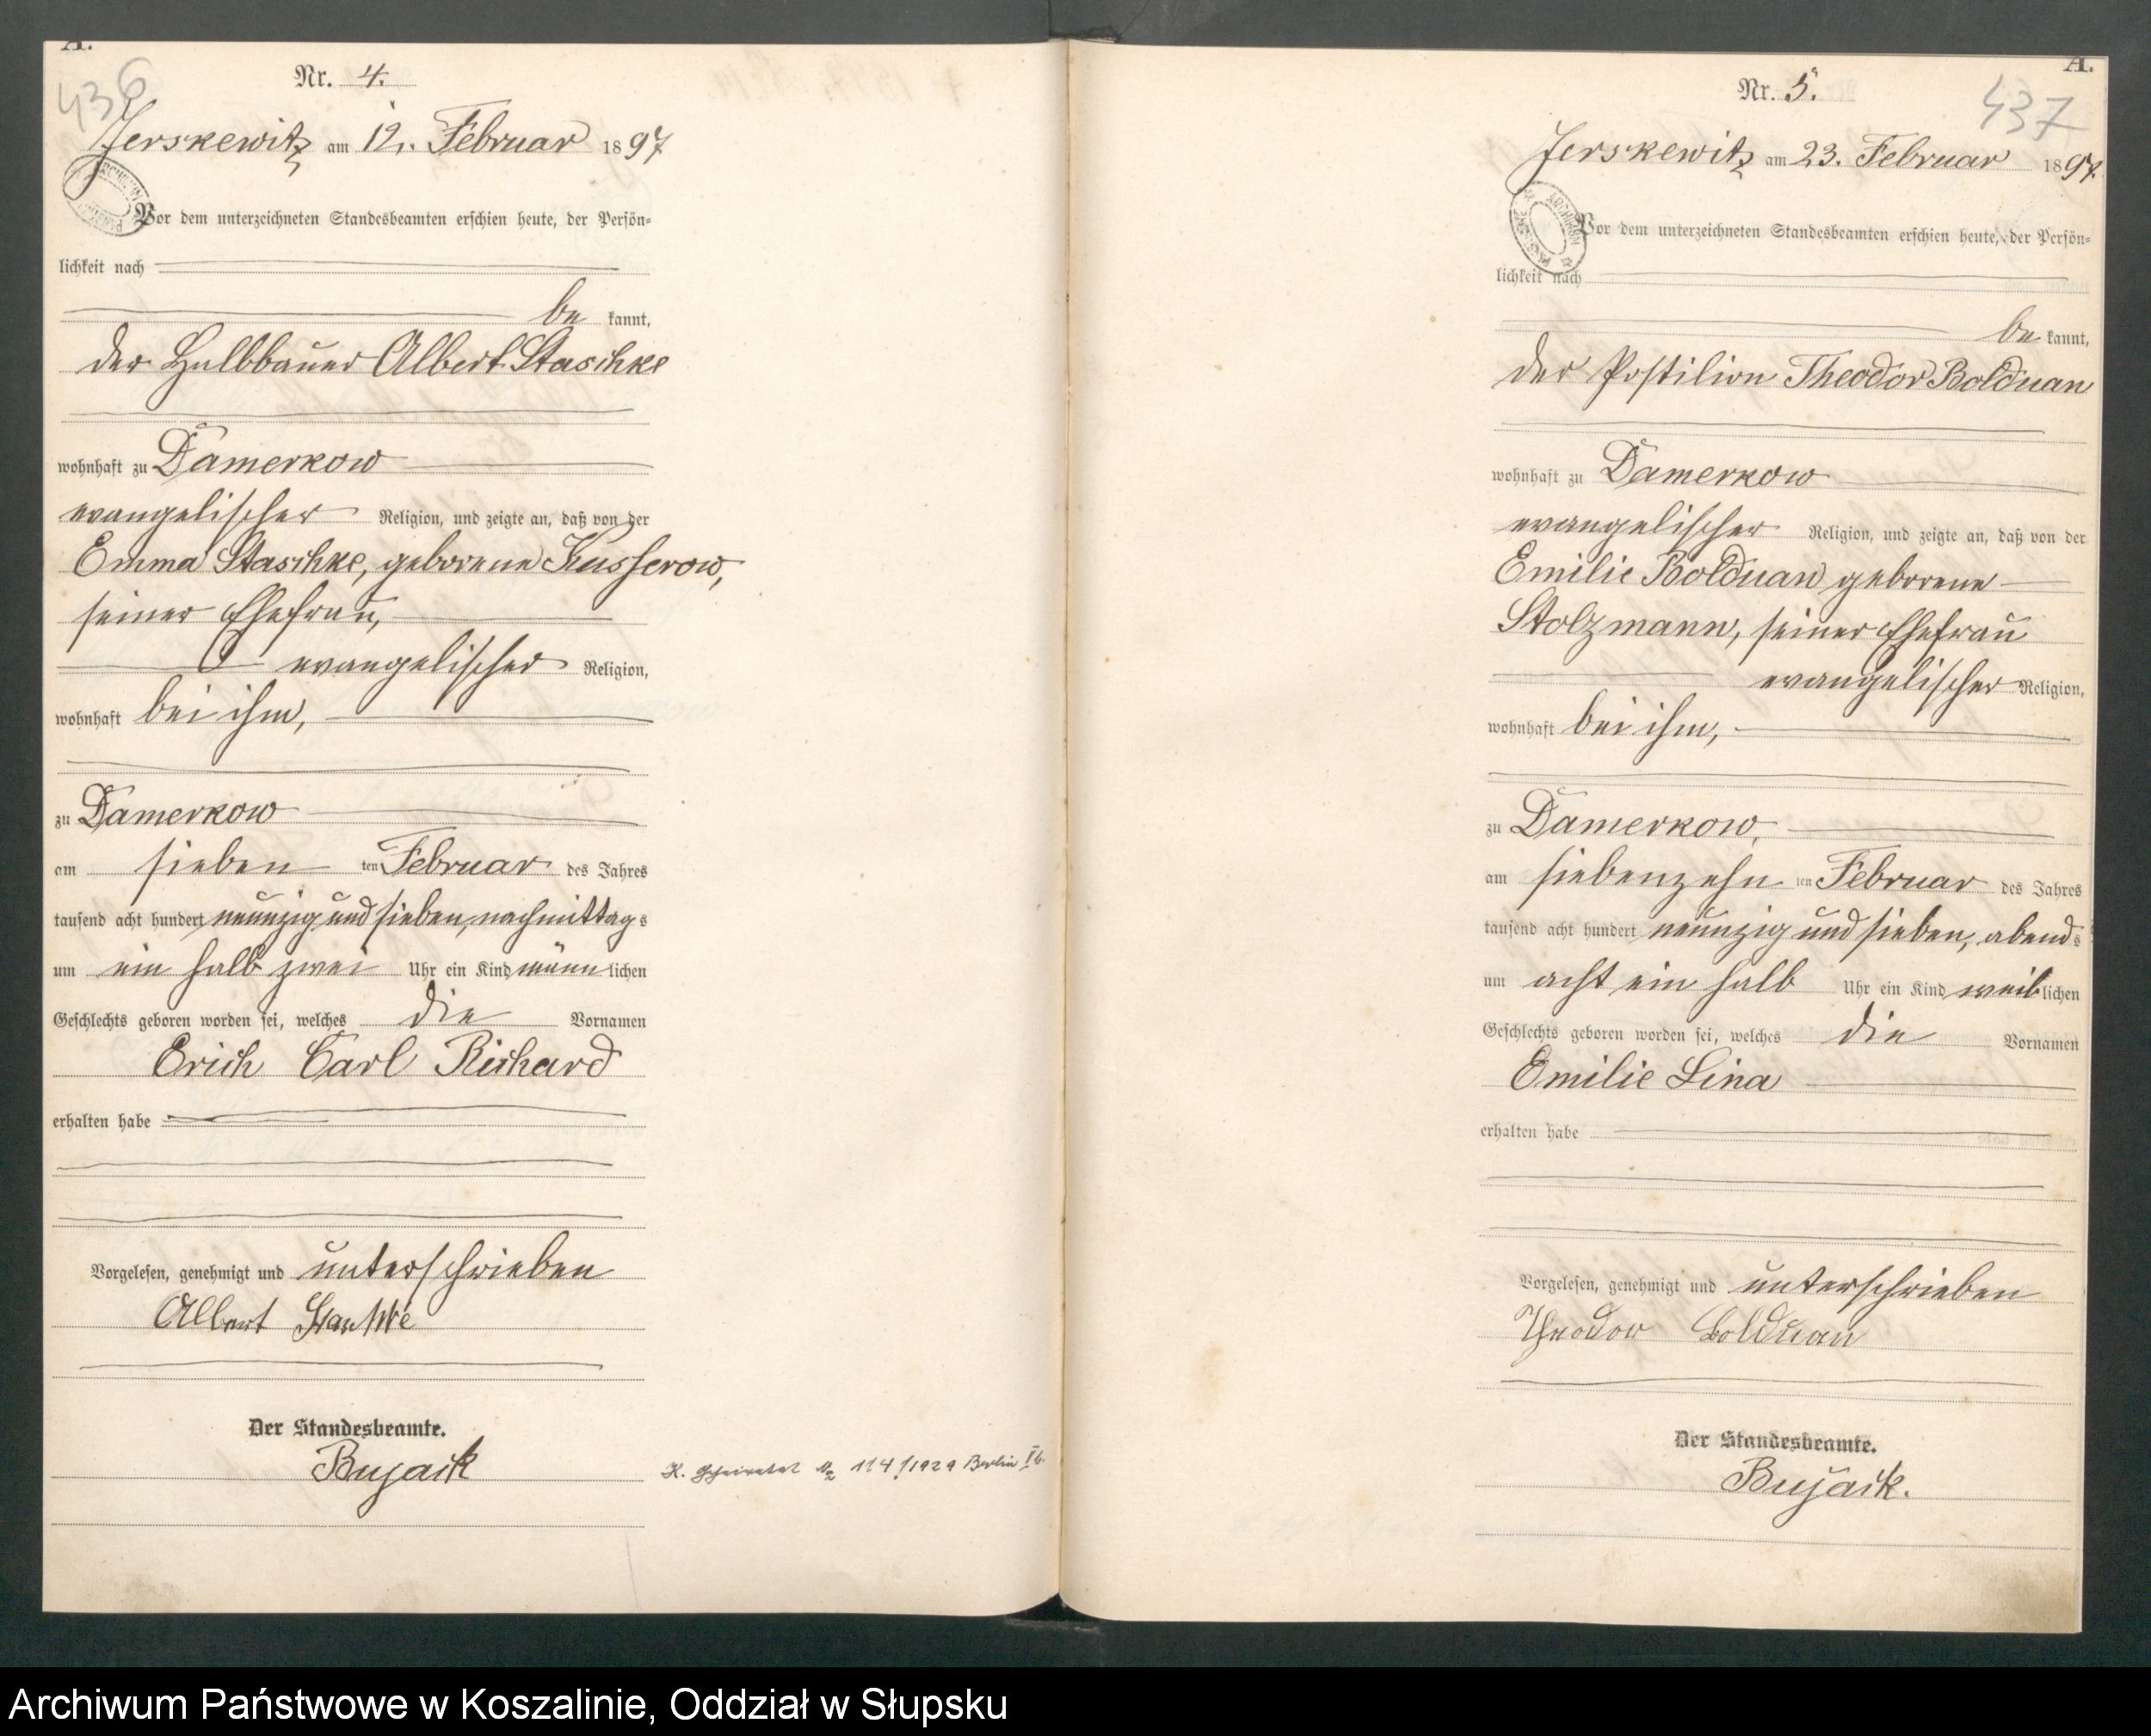 A.
436
Nr. 4.
Jerskewitz am 12. Februar 1897
Vor dem unterzeichneten Standesbeamten erschien heute, der Persön-
lichkeit nach
be kannt,
der Halbbauer Albert Staschke
wohnhaft zu Damerkow
evangelischer Religion, und zeigte an, daß von der
Emma Staschke, geborene Kusserow,
seiner Ehefrau,
evangelischer Religion,
wohnhaft bei ihm,
zu Damerkow
am sieben ten Februar des Jahres
tausend acht hundert neunzig und sieben, nachmittags
um ein halb zwei Uhr ein Kind männlichen
Geschlechts geboren worden sei, welches die Vornamen
Erich Carl Richard
erhalten habe
Vorgelesen, genehmigt und unterschrieben
Albert Staschke
Der Standesbeamte.
Bujack
K. Geheiratet № 114/1929 Berlin
A.
437
Nr. 5.
Jerskewitz am 23. Februar 1897.
Vor dem unterzeichneten Standesbeamten erschien heute, der Persön-
lichkeit nach
be kannt,
der Postilion Theodor Bolduan
wohnhaft zu Damerkow
evangelischer Religion, und zeigte an, daß von der
Emilie Bolduan geborene
Stolzmann, seiner Ehefrau
evangelischer Religion,
wohnhaft bei ihm,
zu Damerkow,
am siebenzehn ten Februar des Jahres
tausend acht hundert neunzig und sieben, abends
um acht ein halb Uhr ein Kind weiblichen
Geschlechts geboren worden sei, welches die Vornamen
Emilie Lina
erhalten habe
Vorgelesen, genehmigt und unterschrieben
Theodor Bolduan
Der Standesbeamte.
Bujack.
Archiwum Państwowe w Koszalinie, Oddział w Słupsku